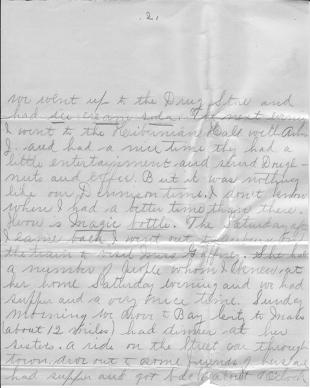 . 2 .
we went up to the Drug Store and
had ice cream soda. The next eveng
I went to the Hibernian Hall with
I. and had a nice time they had a
little entertainment and served Dough-
nuts and coffee. But it was nothing
like our time. I don't know
when I had a better time than there.
How is Magic bottle. The Saturday aft
I came back I went out to
the train to visit Miss Gaffney. She had
a number of people whom I knew, at
her home Saturday evening and we had
supper and a very nice time. Sunday
morning we drove to Bay
(about 12 miles) had dinner at her
sisters. A ride on the street car through
town, drove out to some friends of hers,
had supper and got back about 9 O'clock